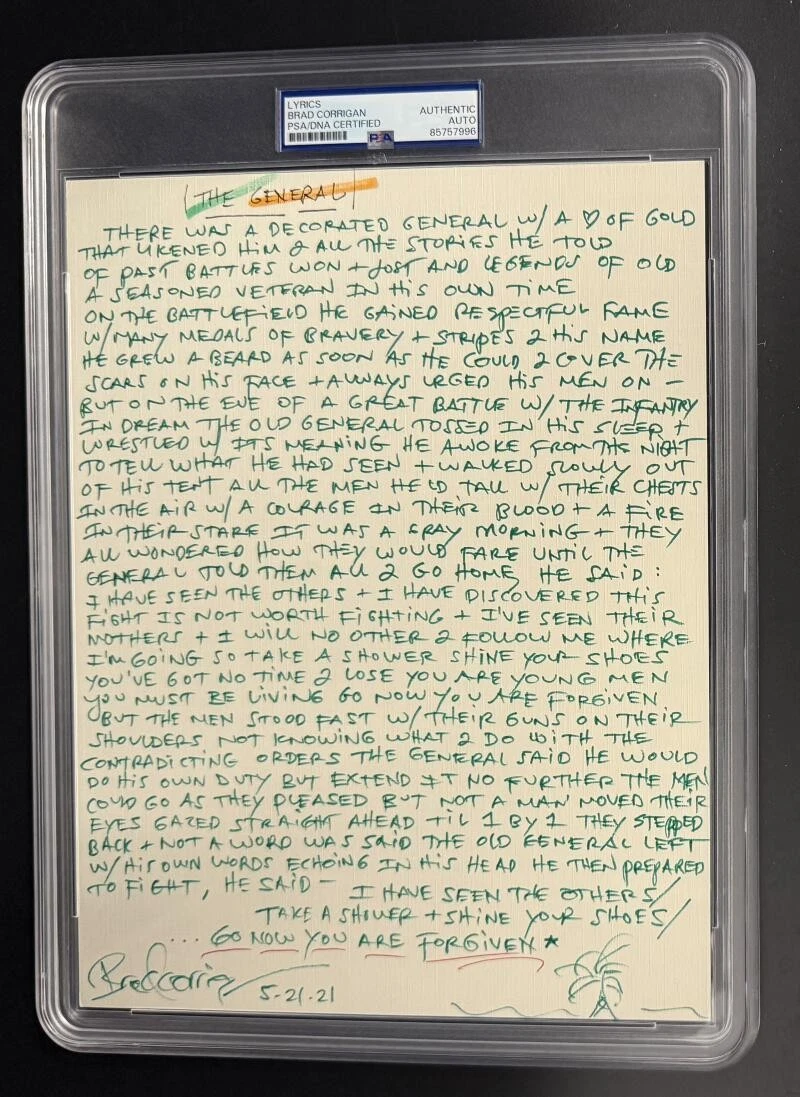 LYRICS
BRAD CORRIGAN
PSA/DNA CERTIFIED
AUTHENTIC
AUTO
85757996
PSA
THE GENERAL
THERE WAS A DECORATED GENERAL W/ A ♡ OF GOLD
THAT LIKENED HIM 2 ALL THE STORIES HE TOLD
OF PAST BATTLES WON + LOST AND LEGENDS OF OLD
A SEASONED VETERAN IN HIS OWN TIME
ON THE BATTLEFIELD HE GAINED RESPECTFUL FAME
W/ MANY MEDALS OF BRAVERY + STRIPES 2 HIS NAME
HE GREW A BEARD AS SOON AS HE COULD 2 COVER THE
SCARS ON HIS FACE + ALWAYS URGED HIS MEN ON –
BUT ON THE EVE OF A GREAT BATTLE W/ THE INFANTRY
IN DREAM THE OLD GENERAL TOSSED IN HIS SLEEP +
WRESTLED W/ ITS MEANING HE AWOKE FROM THE NIGHT
TO TELL WHAT HE HAD SEEN + WALKED SLOWLY OUT
OF HIS TENT ALL THE MEN HELD TALL W/ THEIR CHESTS
IN THE AIR W/ A COURAGE IN THEIR BLOOD + A FIRE
IN THEIR STARE IT WAS A GRAY MORNING + THEY
ALL WONDERED HOW THEY WOULD FARE UNTIL THE
GENERAL TOLD THEM ALL 2 GO HOME, HE SAID :
I HAVE SEEN THE OTHERS + I HAVE DISCOVERED THIS
FIGHT IS NOT WORTH FIGHTING + I'VE SEEN THEIR
MOTHERS + I WILL NO OTHER 2 FOLLOW ME WHERE
I'M GOING SO TAKE A SHOWER SHINE YOUR SHOES
YOU'VE GOT NO TIME 2 LOSE YOU ARE YOUNG MEN
YOU MUST BE LIVING GO NOW YOU ARE FORGIVEN
BUT THE MEN STOOD FAST W/ THEIR GUNS ON THEIR
SHOULDERS NOT KNOWING WHAT 2 DO WITH THE
CONTRADICTING ORDERS THE GENERAL SAID HE WOULD
DO HIS OWN DUTY BUT EXTEND IT NO FURTHER THE MEN
COULD GO AS THEY PLEASED BUT NOT A MAN MOVED THEIR
EYES GAZED STRAIGHT AHEAD TIL 1 BY 1 THEY STEPPED
BACK + NOT A WORD WAS SAID THE OLD GENERAL LEFT
W/ HIS OWN WORDS ECHOING IN HIS HEAD HE THEN PREPARED
TO FIGHT, HE SAID – I HAVE SEEN THE OTHERS/
TAKE A SHOWER + SHINE YOUR SHOES/
... GO NOW YOU ARE FORGIVEN *
Brad Corrigan 5-21-21